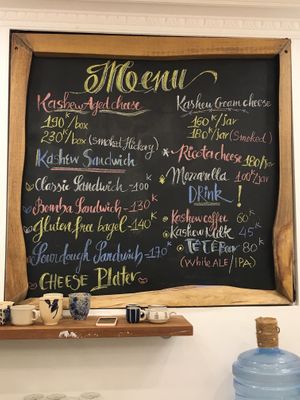 Menu
Kashew Aged cheese
190K/box
230K/box (smoked Hickory)
Kashew Sandwich
Classic Sandwich -100K
Bomba Sandwich -130K
Gluten free bagel -140K
Sourdough Sandwich -170K
CHEESE Plater
Kashew Cream cheese
160K/Jar
180K/Jar (Smoked)
Ricota cheese 180/Jar
Mozarella 100K/Jar
DRiNK!
Kashew coffee 60K
Kashew 45K
TÊTE Beer 80K
(White ALE/IPA)